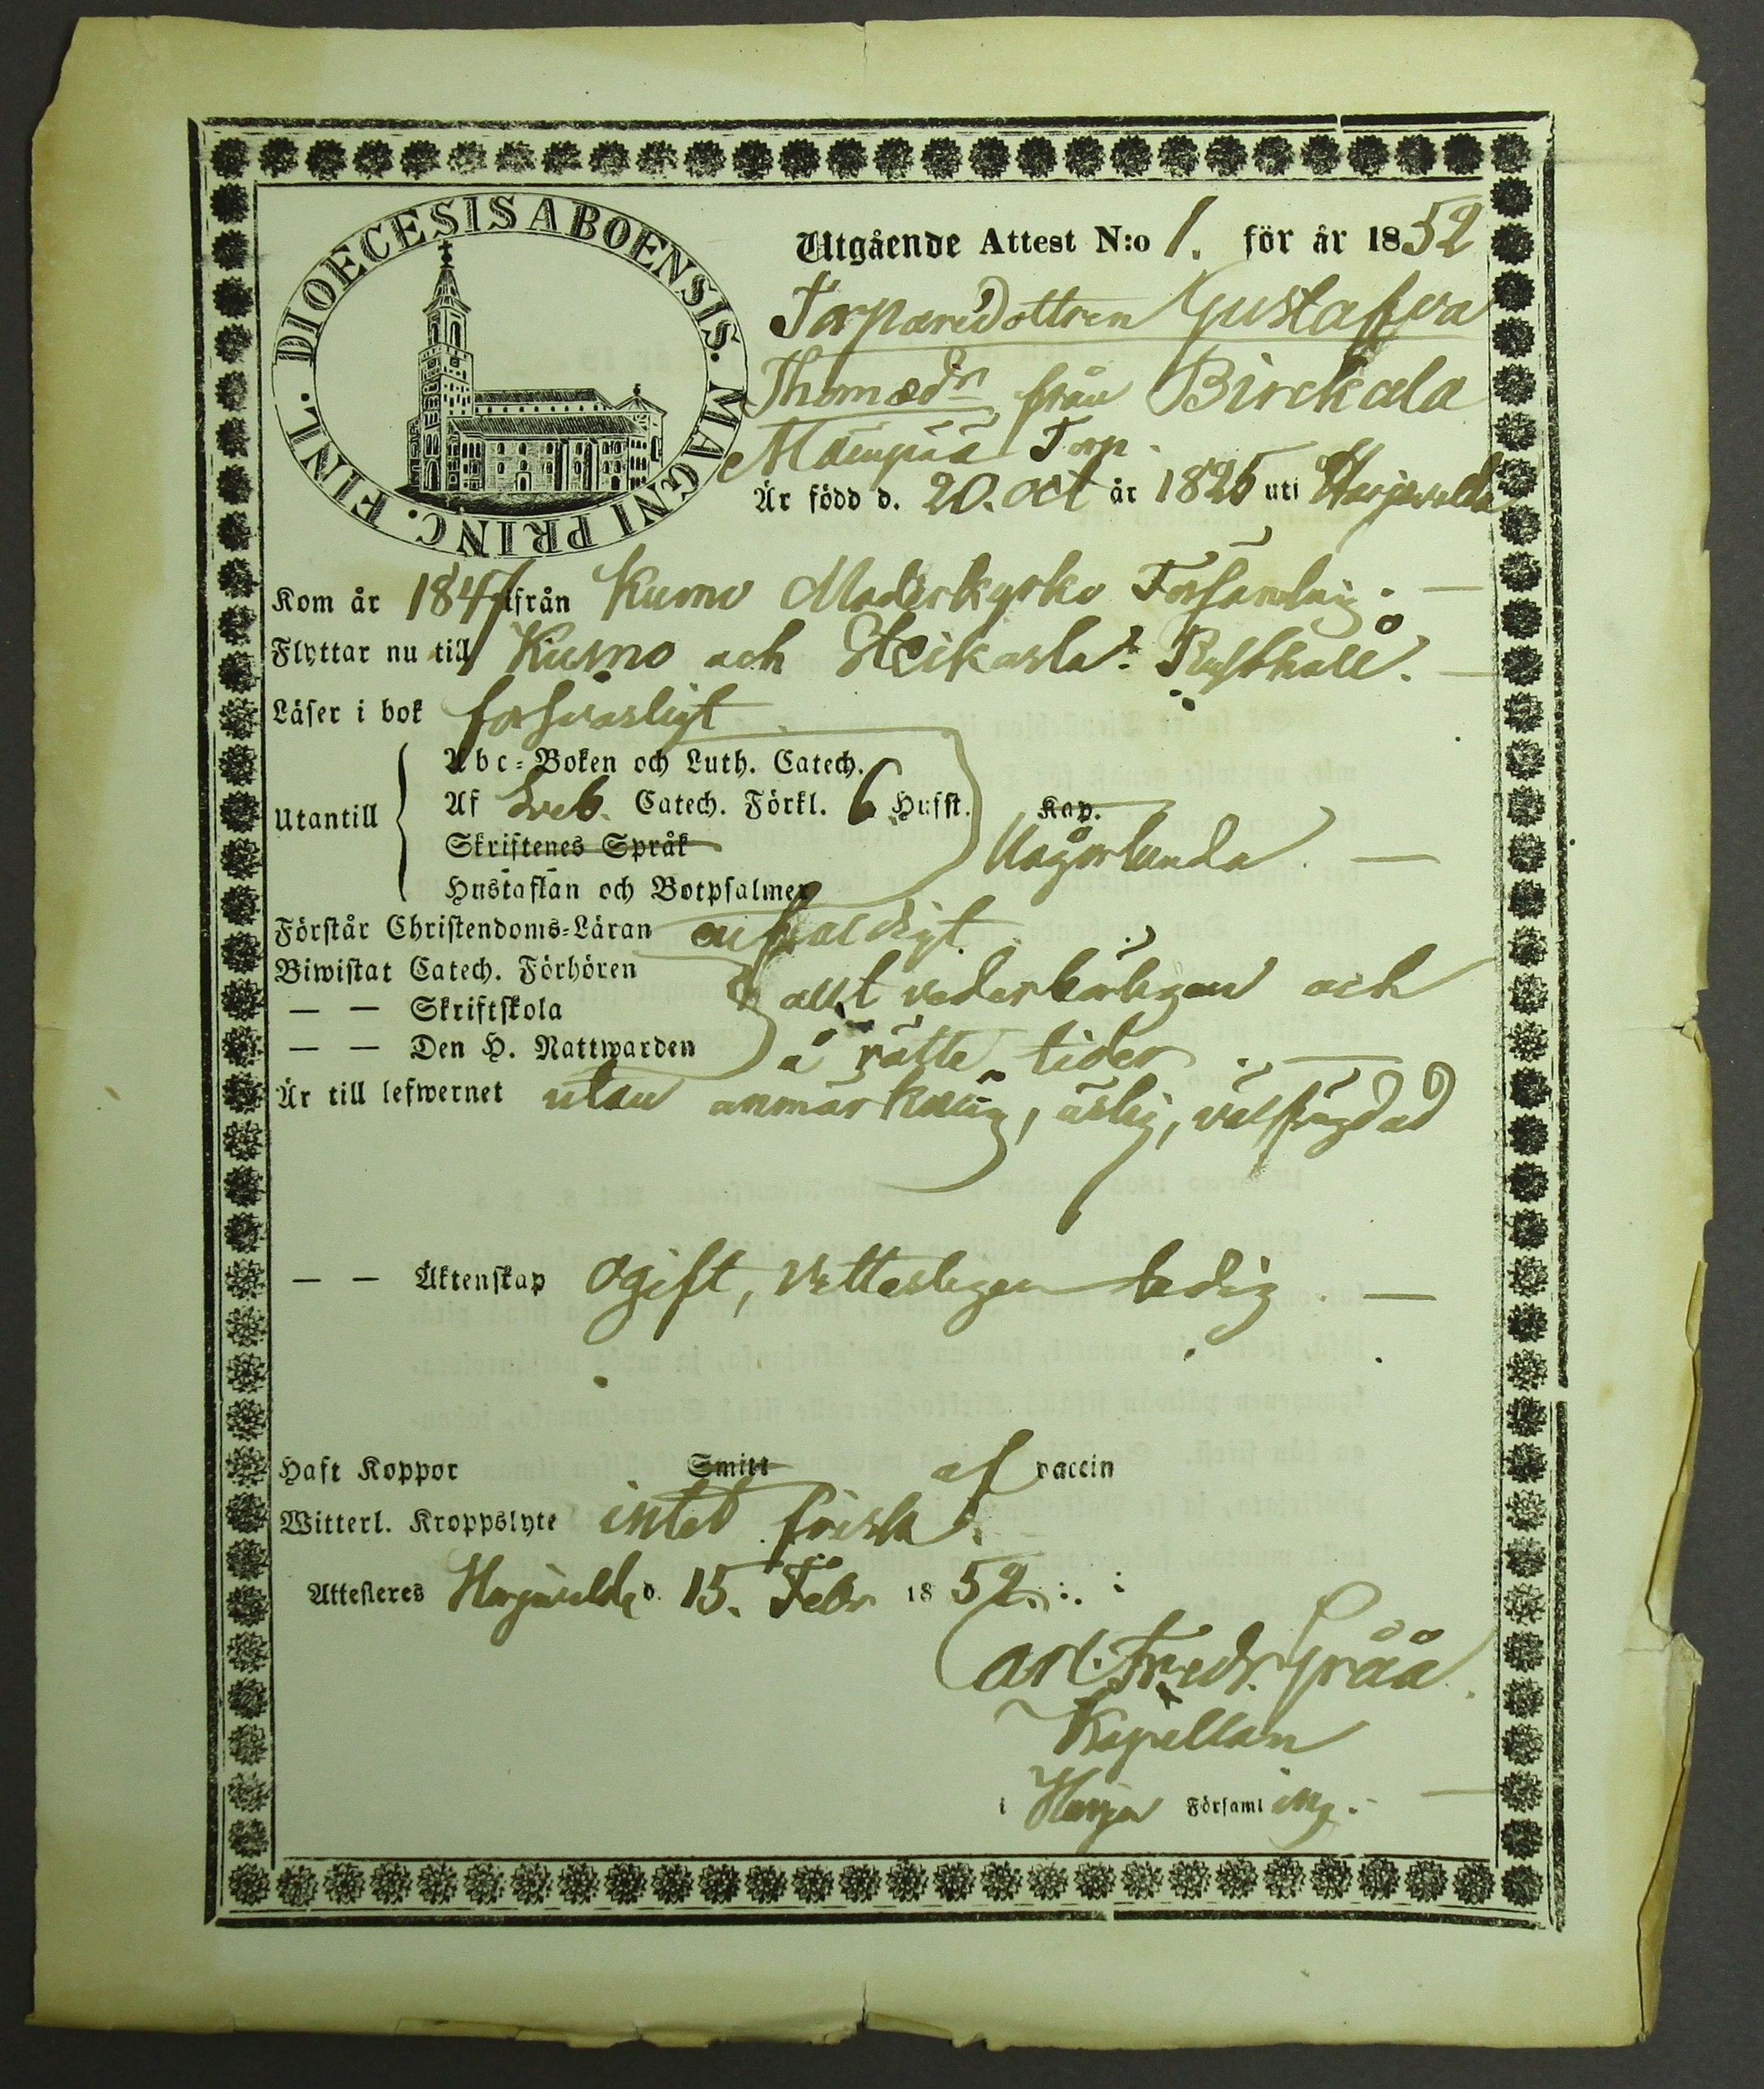 DIOECESIS ABOENSIS. MAGNI PRINC. FINL.
Utgående Attest N:o 1. för år 1852
Torparedottren Gustafva
Thomædr från Birckala
Mäenpää Torp.
Är född d. 20. Oct år 1826 uti Harjavalda
Kom år 1847 ifrån Kumo Moderkyrko Församling. —
Flyttar nu till Kumo och Rusthåll. —
Läser i bok försvarligt
Utantill
Abc-Boken och Luth. Catech.
Af Sveb. Catech. Förkl. 6 Hufst. Kap.
Skriftenes Språk
Hustaflan och Botpsalmer
någorlunda. —
Förstår Christendoms-Läran enfaldigt.
Biwistat Catech. Förhören
— — Skriftskola
— — Den H. Nattwarden
allt vederbörligen och
å rätte tider. —
Är till lefwernet utan anmärkning, ärlig, välfrägdad
— — Äktenskap ogift, vetterligen ledig. —
Haft Koppor Smitt af vaccin
Witterl. Kroppslyte intet frisk.
Attesteres Harjavalda d. 15. Febr 1852.
Carl Fredr. Gråå.
Kapellan
i Harja Församling. —